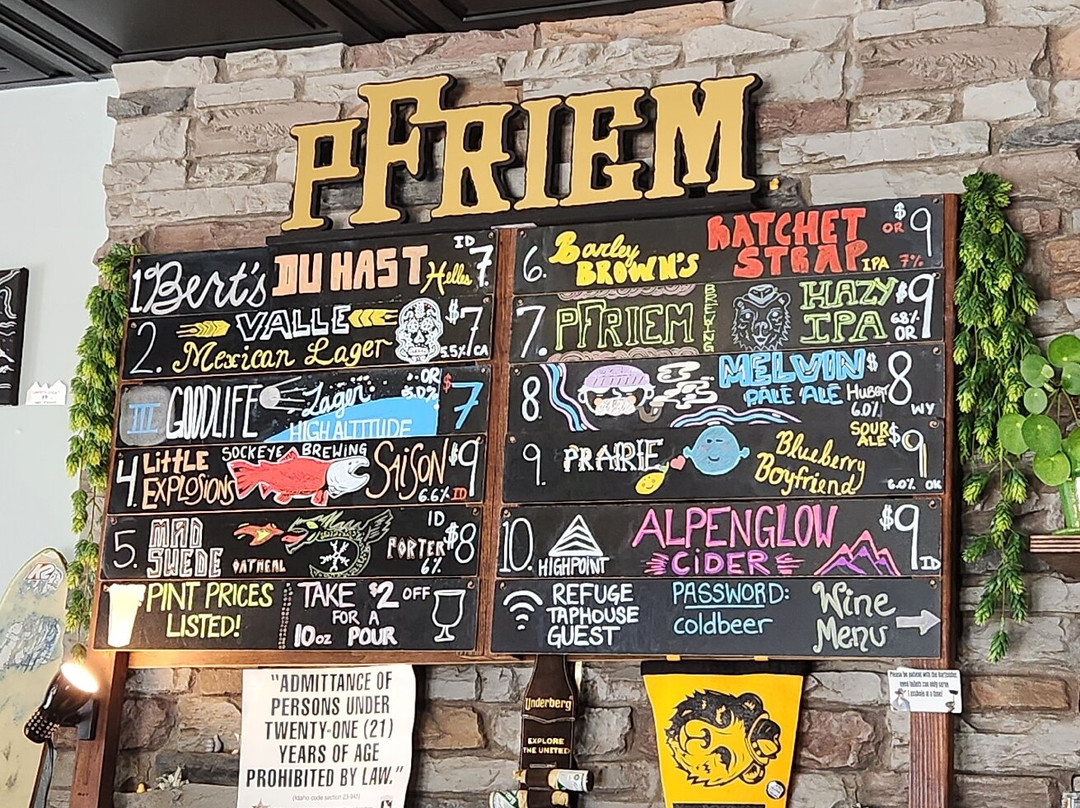 PFRIEM
1. Bert's DU HAST Helles ID 7
2. VALLE $7
Mexican Lager 5.5% CA
III GOODLIFE Lager OR 5.0% $7
HIGH ALTITUDE
4. LITTLE EXPLOSIONS SOCKEYE BREWING SAISON $9
6.6% ID
5. MAD SWEDE OATMEAL PORTER ID $8
6%
PINT PRICES LISTED!
TAKE $2 OFF
FOR A
10oz POUR
6. Barley BROWN'S RATCHET STRAP IPA 7% OR $9
7. PFRIEM BREWING HAZY IPA 6.8% OR $9
8. MELVIN $8
PALE ALE HUBERT 6.0% WY
9. PRAIRIE Blueberry Boyfriend SOUR ALE $9
6.0% OK
10. HIGHPOINT ALPENGLOW CIDER $9 ID
REFUGE
TAPHOUSE
GUEST
PASSWORD:
coldbeer
Wine
Menu
"ADMITTANCE OF
PERSONS UNDER
TWENTY-ONE (21)
YEARS OF AGE
PROHIBITED BY LAW."
(Idaho code section 23-943)
Underberg
EXPLORE
THE UNITED
Please be patient with the bartender,